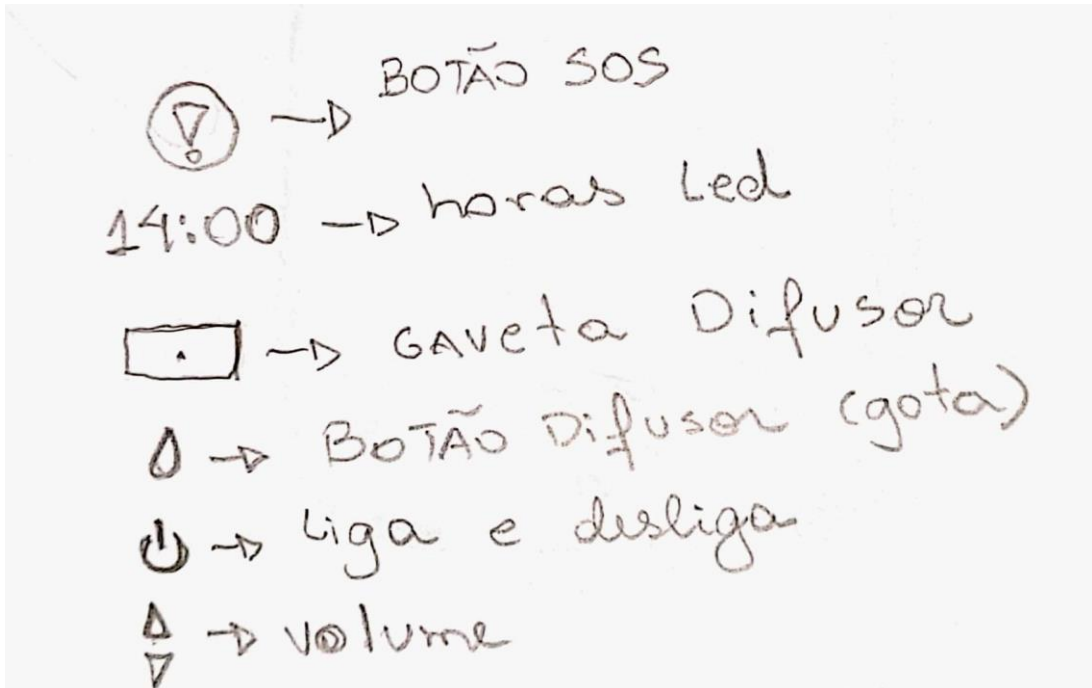 BOTÃO SOS
14:00 → horas Led
GAVeta Difusor
BOTÃO Difusor (gota)
Liga e desliga
volume